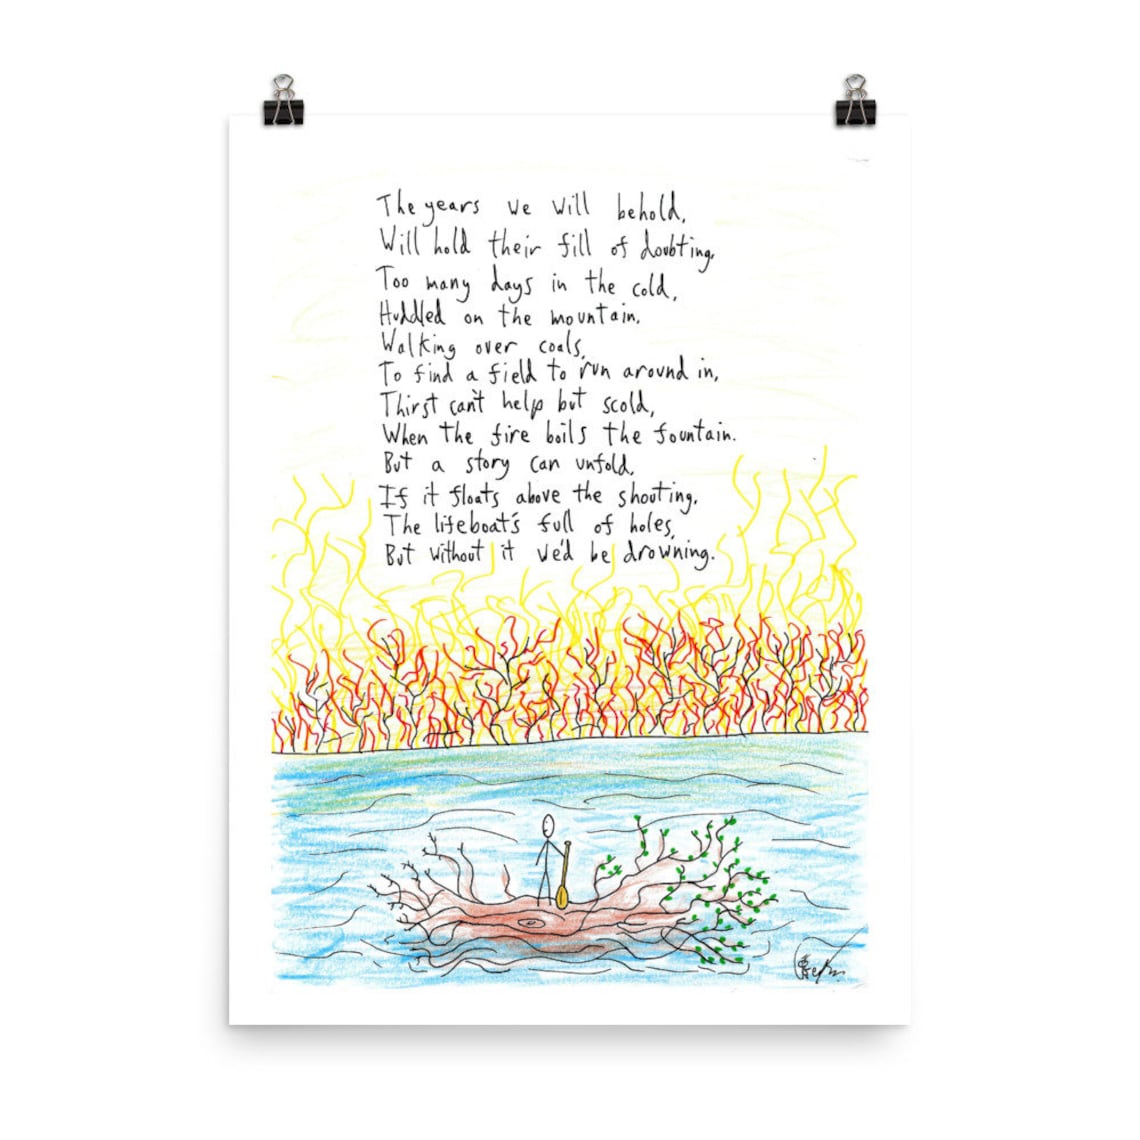 The years we will behold,
Will hold their fill of doubting,
Too many days in the cold,
Huddled on the mountain.
Walking over coals,
To find a field to run around in,
Thirst can't help but scold,
When the fire boils the fountain.
But a story can unfold,
If it floats above the shouting.
The lifeboat's full of holes,
But without it we'd be drowning.